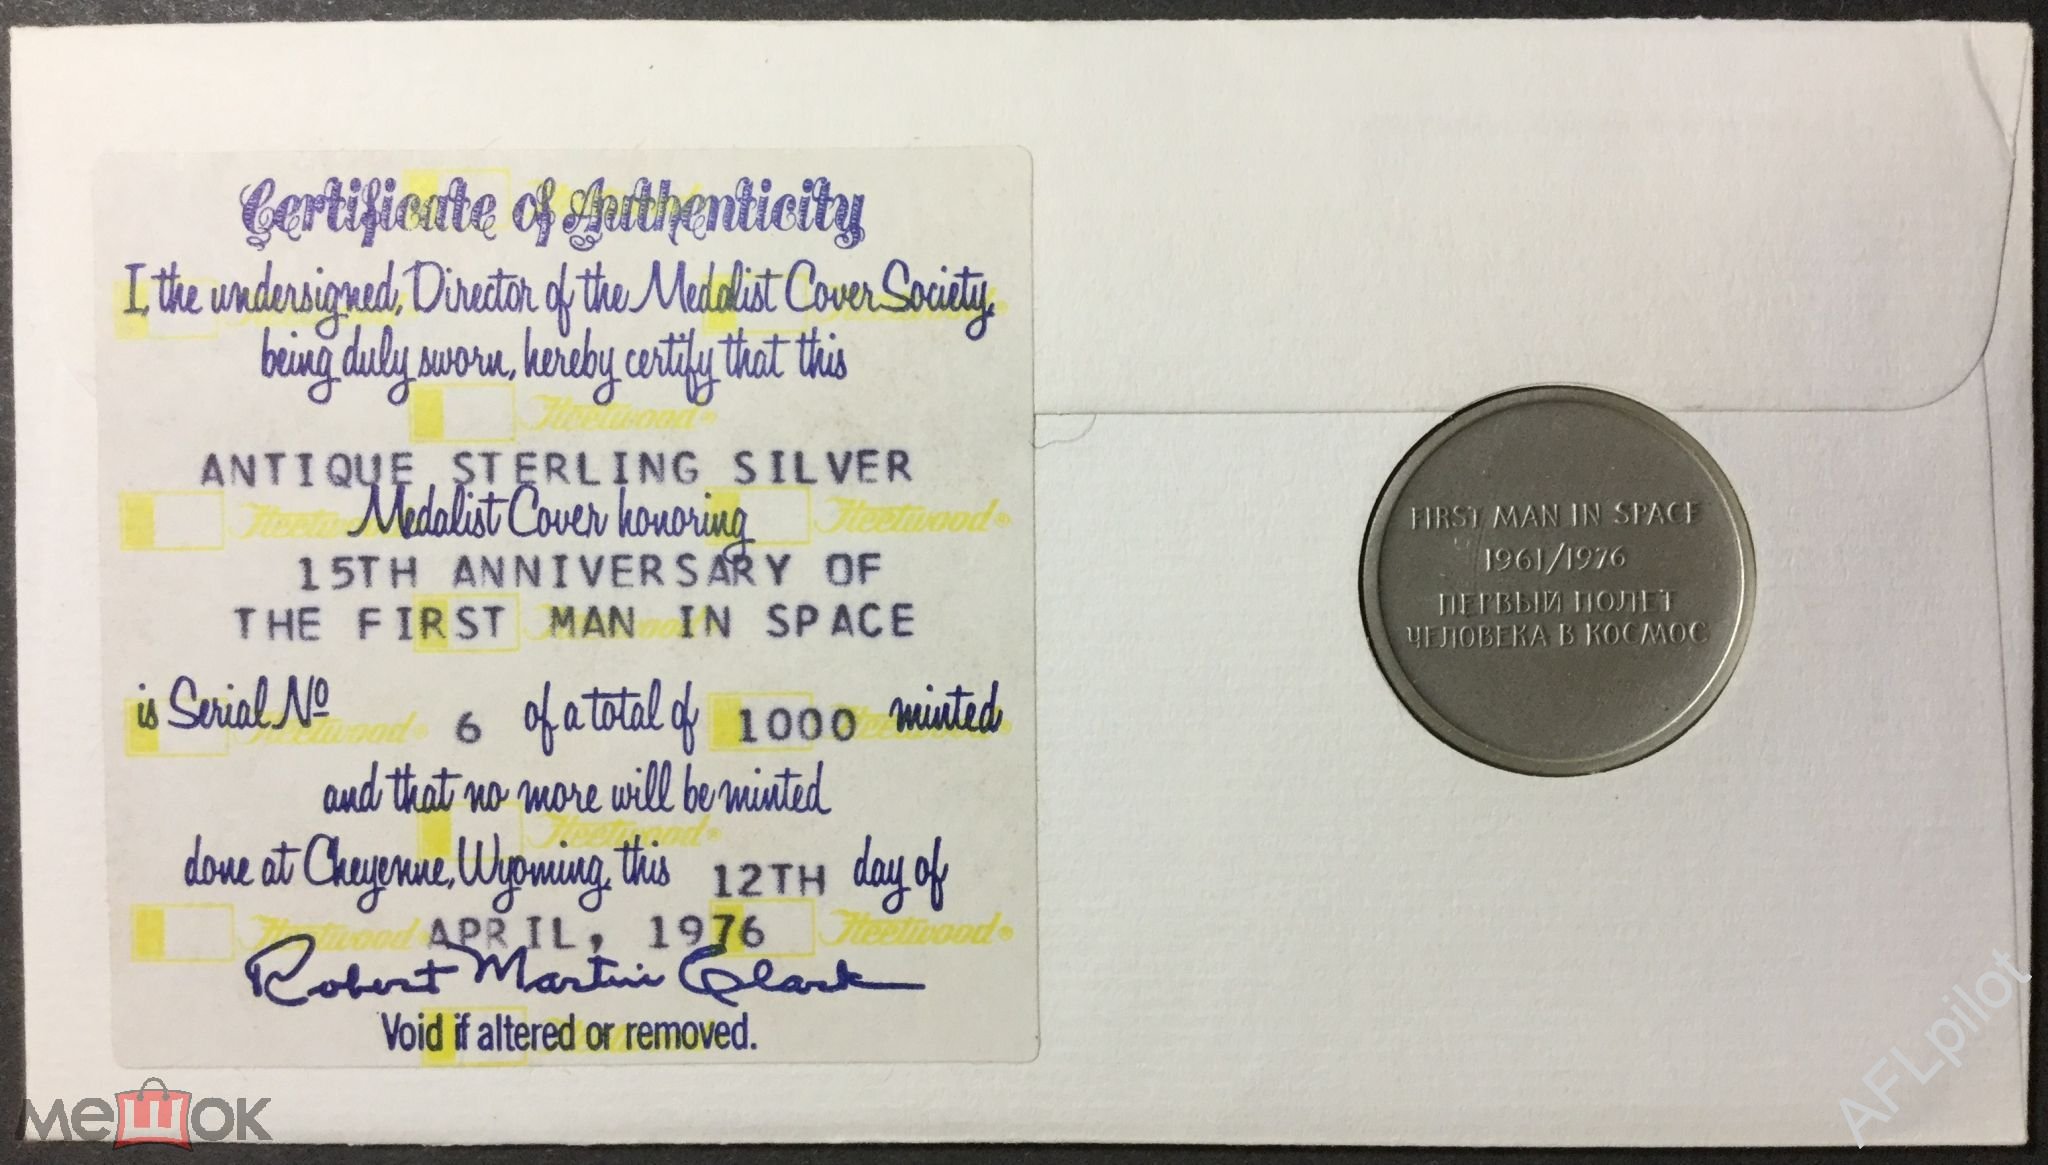 Certificate of Authenticity
I, the undersigned, Director of the Medalist Cover Society,
being duly sworn, hereby certify that this
Fleetwood®
ANTIQUE STERLING SILVER
Medalist Cover honoring
Fleetwood®
15TH ANNIVERSARY OF
THE FIRST MAN IN SPACE
is Serial No 6 of a total of 1000 minted
Fleetwood®
and that no more will be minted
Fleetwood®
done at Cheyenne, Wyoming, this 12TH day of
Fleetwood
APRIL, 1976
Fleetwood®
Robert Martin Clark
Void if altered or removed.
FIRST MAN IN SPACE
1961/1976
ПЕРВЫЙ ПОЛЕТ
ЧЕЛОВЕКА В КОСМОС
мешок
AFLpilot